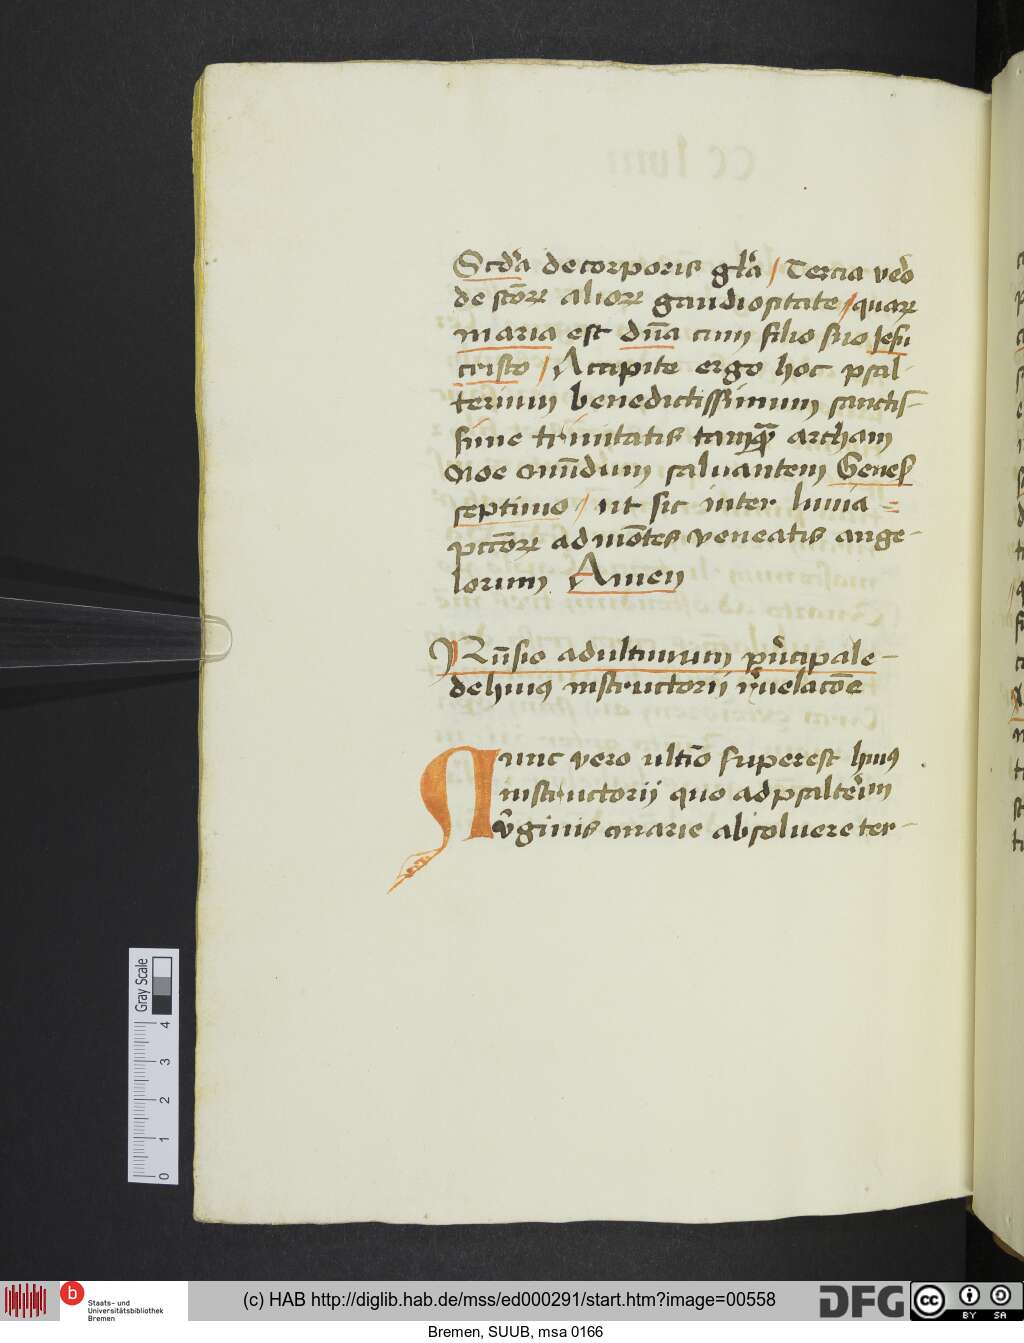 Scd̃a de corporis gl̃a / Tercia vero
de sctoꝝ alioꝝ gaudiositate / quaꝝ
maria est dña cum filio suo Jesu
cristo / Accipite ergo hoc psal-
terium benedictissimum sanctis-
sime trinitatis tamqꝫ archam
Noe mundum saluantem Genes̃
septimo / ut sic inter limia =
pctoꝝ ad mõtes veneatis ange-
lorum Amen
ad ultimum prĩcipale -
de huiꝰ instructorii
Nunc vero ultĩo superest huiꝰ
instructorij quo ad psalteriũ
virginis marie absoluere ter-
Gray Scale
4
3
2
1
0
b
Staats- und
Universitätsbibliothek
Bremen
(c) HAB http://diglib.hab.de/mss/ed000291/start.htm?image=00558
DFG
cc
BY
SA
Bremen, SUUB, msa 0166